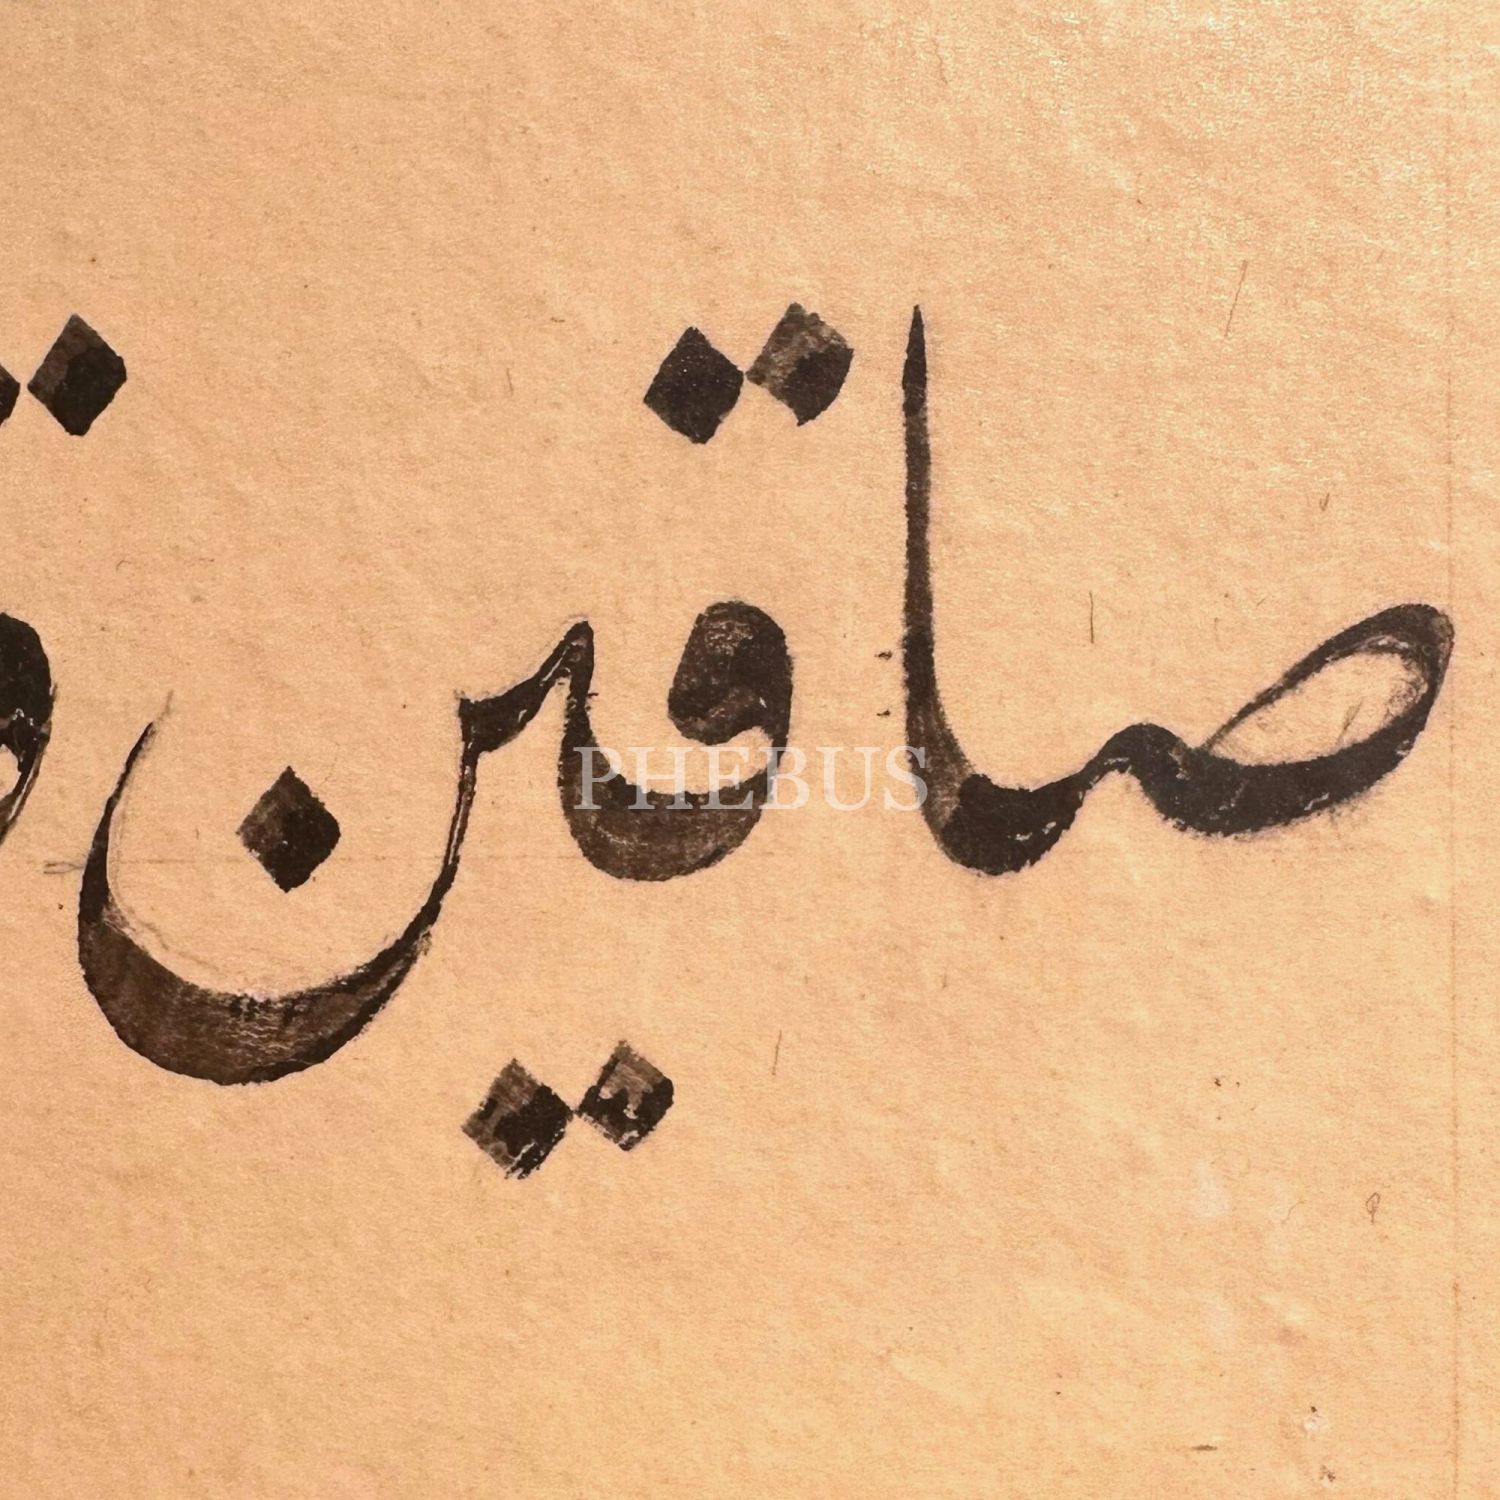 صاقين
PHEBUS